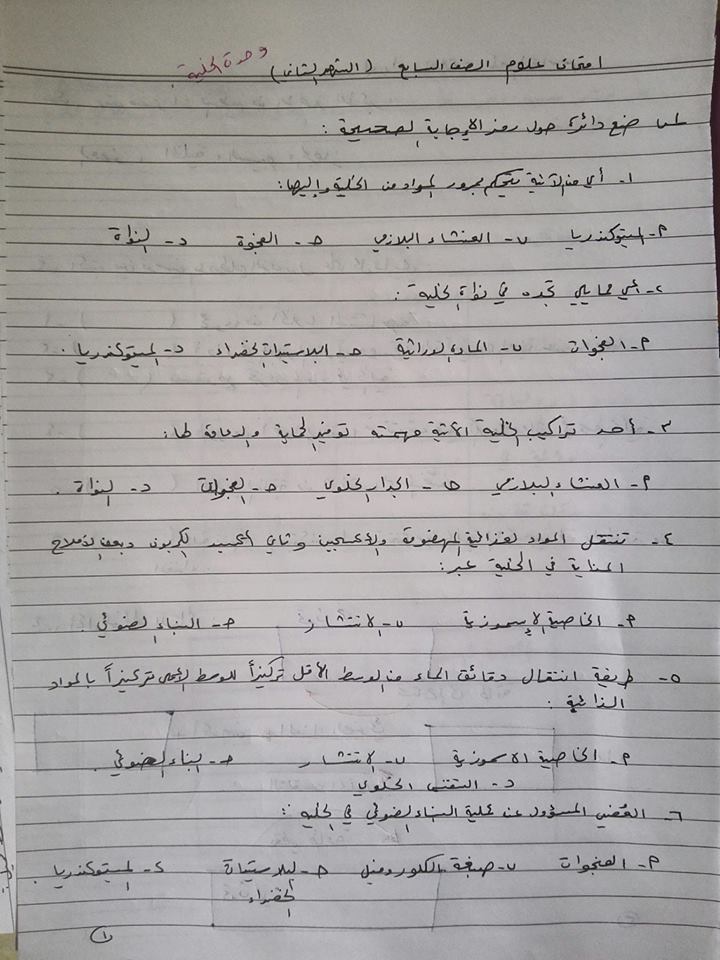 وحدة الخلية
امتحان علوم الصف السابع (الشهر الثاني)
س١ ضع دائرة حول رمز الإجابة الصحيحة :
١- أي من الآتية يتحكم بمرور المواد من الخلية وإليها:
٢- الميتوكندريا ب- الغشاء البلازمي ج- الفجوة د- النواة
٢- أي مما يلي تجده في نواة الخلية :
٢- الفجوات ب- المادة الوراثية ج- البلاستيدات الخضراء د- الميتوكندريا .
٣- أحد تراكيب الخلية الآتية مهمته توفير الحماية والدعامة لها:
٢- الغشاء البلازمي ب- الجدار الخلوي ج- الفجوات د- النواة .
٤- تنتقل المواد الغذائية المهضومة والأكسجين وثاني أكسيد الكربون وبعض الأملاح
في الخلية عبر:
٢- الخاصية الإسموزية ب- الانتشار ج- البناء الضوئي .
٥- طريقة انتقال دقائق الماء من الوسط الأقل تركيزاً للوسط الأعلى تركيزاً بالمواد
الذائبة :
٢- الخاصية الاسموزية ب- الانتشار ج- البناء الضوئي .
د- التنفس الخلوي
٦- العُضي المسؤول عن عملية البناء الضوئي في الخلية :
٢- الفجوات ب- صبغة الكلوروفيل ج- البلاستيدات د- الميتوكندريا
الخضراء
١